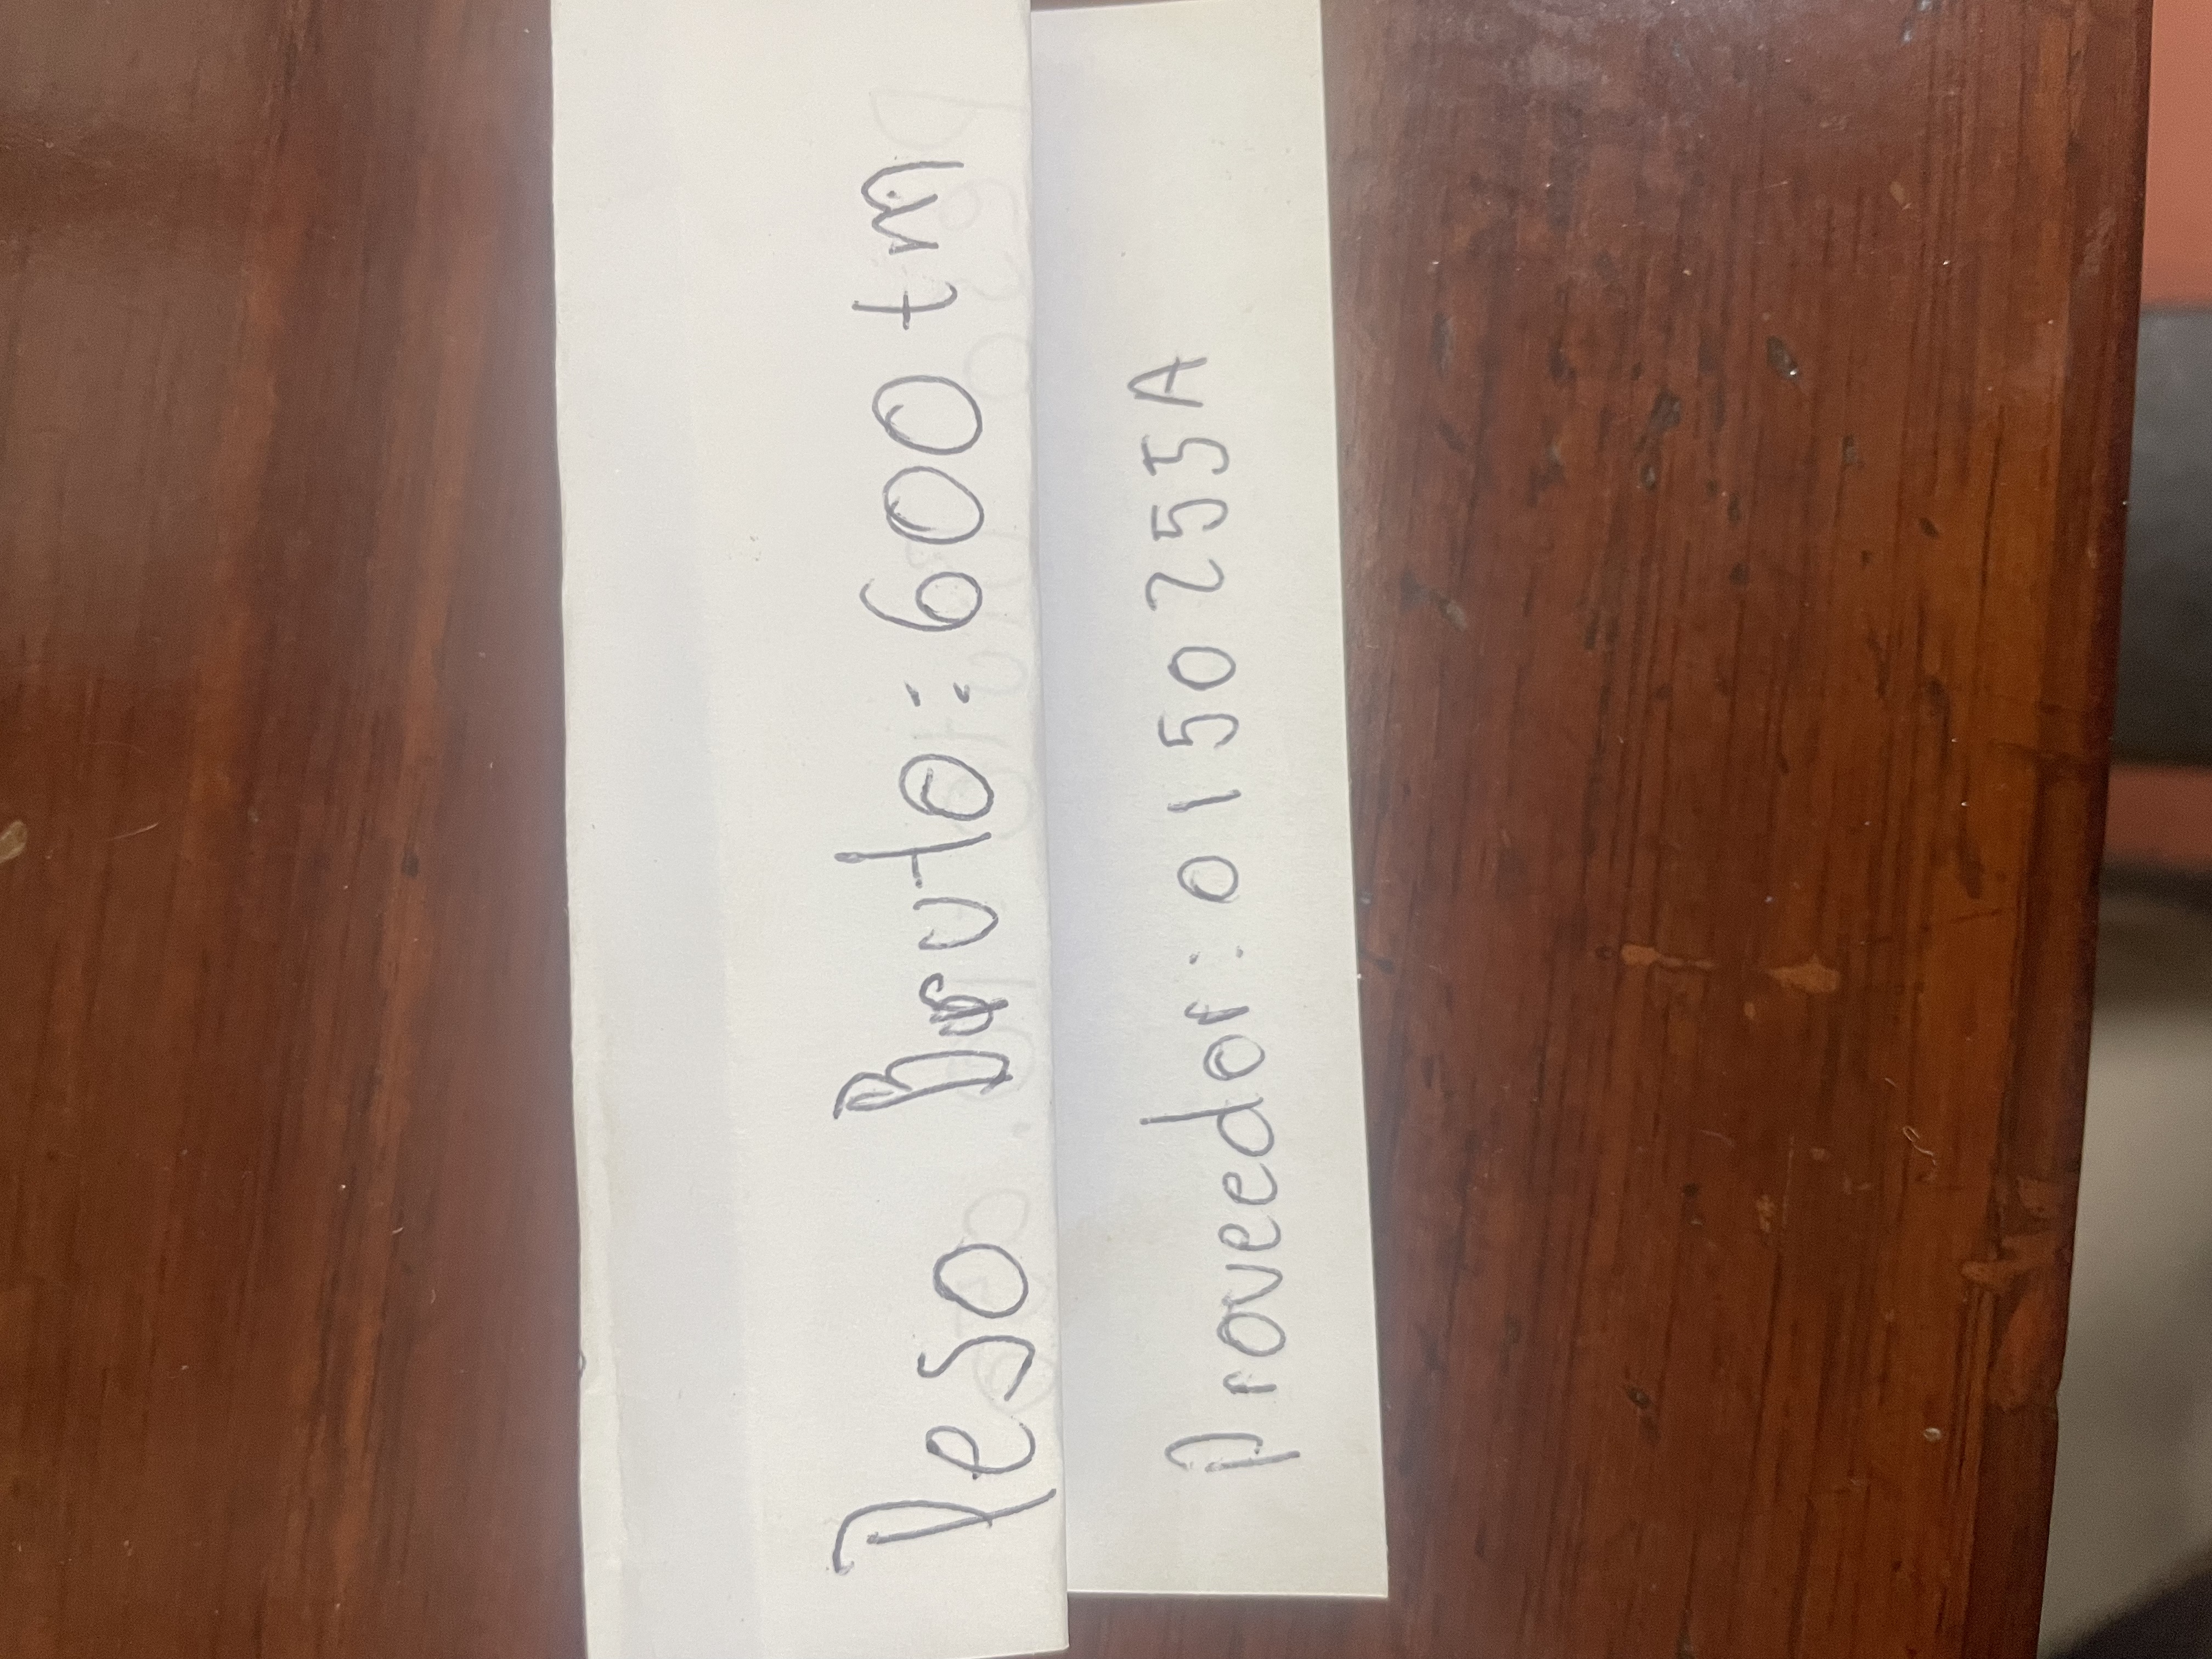 Peso Bruto: 600 tm
Proveedor: 0150255A